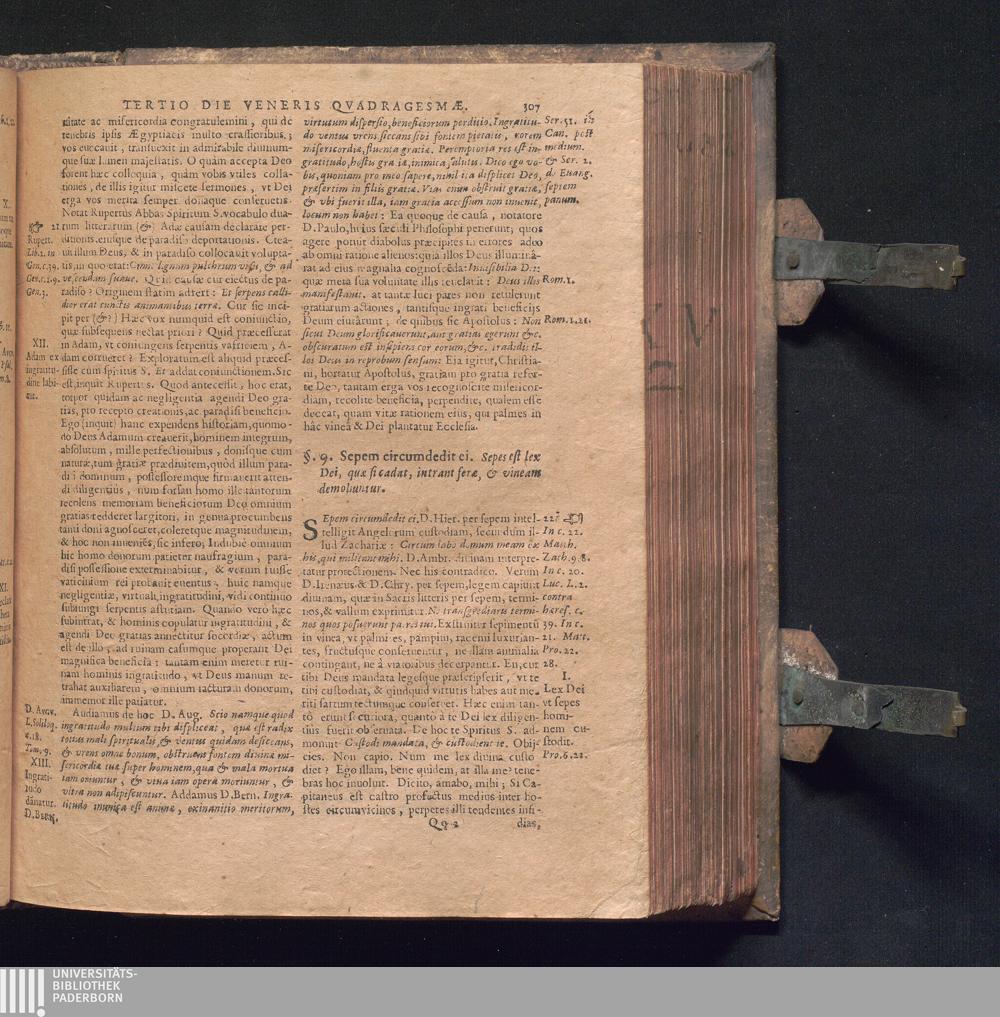 TERTIO DIE VENERIS QVADRAGESMÆ. 307
gitate ac misericordia congratulemini, qui de
tenebris ipsis Ægyptiacis multo crassioribus,
vos euocauit, transuexit in admirabile diuinum-
que suæ lumen majestatis. O quàm accepta Deo
forent hæc colloquia, quàm vobis vtiles colla-
tiones, de illis igitur miscete sermones, vt Dei
erga vos merita semper donaque conseruetis.
Notat Rupertus Abbas Spiritum S. vocabulo dua-
rum litterarum (&) Adæ causam declarate per-
ditionis, eiusque de paradiso deportationis. Crea-
uit illum Deus, & in paradiso collocauit volupta-
tis, in quo erat: Omne lignum pulchrum visu, & ad
vescendum suaue. Quid causæ cur eiectus de pa-
radiso? Originem statim adfert: Et serpens calli-
dior erat cunctis animantibus terræ. Cur sic inci-
pit per (&?) Hæc vox numquid est coniunctio,
quæ subsequens nectat priori? Quid præcesserat
in Adam, vt coniungens serpentis vafriciem, A-
dam corrueret? Exploratum est aliquid præces-
sisse cum spiritus S. Et addat coniunctionem. Sic
est, inquit Rupertus. Quod antecessit, hoc erat,
torpor quidam ac negligentia agendi Deo gra-
tias, pro recepto creationis, ac paradisi beneficio.
Ego (inquit) hanc expendens historiam, quomo-
do Deus Adamum creauerit, hominem integrum,
absolutum, mille perfectionibus, donisque cum
naturæ, tum gratiæ præditum, quòd illum para-
di i dominum, possessoremque firmauerit atten-
di diligentius, num forsan homo ille tantorum
recolens memoriam beneficiorum Deo omnium
gratias redderet largitori, in genua procumbens
tanti doni agnosceret, coleretque magnitudinem,
& hoc non inueniēs, sic infero; Indubiè omnium
hic homo donorum patietur naufragium, para-
disi possessione exterminabitur, & verum fuisse
vaticinium rei probauit euentus. huic namque
negligentiæ, virtuali, ingratitudini, vidi continuo
subiungi serpentis astutiam. Quando vero hæc
subintrat, & hominis copulatur ingratitudini, &
agendi Deo gratias annectitur socordiæ, actum
est de illo, ad ruinam casumque properant Dei
magnifica beneficia: tantam enim meretur rui-
nam hominis ingratitudo, vt Deus manum re-
trahat auxiliarem, omnium iacturam donorum,
immemor ille patiatur.
Audiamus de hoc D. Aug. Scio namque quod
ingratitudo multum tibi displiceat, quæ est radix
totius mali spiritualis, & ventus quidam desiccans,
& vrens omne bonum, obstruens fontem diuinæ mi-
sericordiæ tuæ super hominem, qua & mala mortua
iam oriuntur, & viua iam opera moriuntur, &
vltra non adipiscuntur. Addamus D. Bern. Ingra-
titudo inimica est animæ, exinanitio meritorum,
21
Rupert.
Lib. 2. in
Gen. c. 39.
Gen. c. 2. 9.
Gen. 3.
XII.
Adam ex
ingratitu-
dine labi-
tur.
D. Avgv.
L. Soliloq.
c. 18.
Tom. 9.
XIII.
Ingrati-
tudo
dānatur.
D. Bern.
virtutum dispersio, beneficiorum perditio. Ingratitu-
do ventus vrens, siccans sibi fontem pietatis, rorem
misericordiæ, fluenta gratiæ. Peremptoria res est in-
gratitudo, hostis gra iæ, inimica salutis. Dico ego vo-
bis, quoniam pro meo sapere, nihil ita displicet Deo,
præsertim in filiis gratiæ. Vias enim obstruit gratiæ,
& vbi fuerit illa, iam gratia accessum non inuenit,
locum non habet: Ea quoque de causa, notatore
D. Paulo, huius sæculi Philosophi penerunt; quos
agere potuit diabolus præcipites in errores adeo
ab omni ratione alienos: quia illos Deus illuminâ-
rat ad eius magnalia cognoscēda: Inuisibilia Dei:
quæ mera sua voluntate illis reuelauit: Deus illis
manifestauit. at tantæ luci pares non retulerunt
gratiarum actiones, tantisque ingrati beneficijs
Deum eiurârunt; de quibus sic Apostolus: Non
sicut Deum glorificauerunt, aut gratias egerunt &c.
obscuratum est insipiens cor eorum, &c. tradidit il-
los Deus in reprobum sensum: Eia igitur, Christia-
ni, hortatur Apostolus, gratiam pro gratia refer-
te Deo, tantam erga vos recognoscite misericor-
diam, recolite beneficia, perpendite, qualem esse
deceat, quam vitæ rationem eius, qui palmes in
hâc vineâ & Dei plantatur Ecclesia.
Ser. 51. in
Can. post
medium.
& Ser. 2.
de Euang.
septem
panum.
Rom. 1.
Rom. 1. 21.
§. 9. Sepem circumdedit ei. Sepes est lex
Dei, quæ si cadat, intrant feræ, & vineam
demoliuntur.
SEpem circumdedit ei. D. Hier. per sepem intel-
telligit Angelorum custodiam, secundum il-
lud Zachariæ: Circumdabo domum meam ex
his, qui militant mihi. D. Ambr. diuinam interpre-
tatur protectionem. Nec his contradico. Verum
D. Irenæus & D. Chry. per sepem, legem capiunt
diuinam, quæ in Sacris litteris per sepem, termi-
nos, & vallum exprimitur. Ne transgrediaris termi-
nos quos posuerunt patres tui. Exstruitur sepimentū
in vinea, vt palmites, pampini, racemi luxurian-
tes, fructusque conseruentur, ne illam animalia
contingant, ne à viatoribus decerpantur. En, cur
tibi Deus mandata legesque præscripserit, vt te
tibi custodiat, & quidquid virtutis habes aut me-
riti sartum tectumque conseruet. Hæc enim tan-
tò erunt securiora, quanto à te Dei lex diligen-
tius fuerit obseruata. De hoc te Spiritus S. ad-
monuit: Custodi mandata, & custodient te. Obij-
cies. Non capio. Num me lex diuina custo
diet? Ego illam, bene quidem, at illa me? tene-
bras hoc inuoluit. Dicito, amabo, mihi; Si Ca-
pitaneus est castro profectus medius inter ho-
stes circumvicines, perpetes illi tendentes insi-
22
In c. 22.
Matth.
Zach. 9. 8.
In c. 20.
Luc. L. 2.
contra
hæres. c.
39. In c.
21. Matt.
Pro. 22.
28.
I.
Lex Dei
vt sepes
homi-
nem cu-
stodit.
Pro. 6. 22.
Qq 2 dias,
UNIVERSITÄTS-
BIBLIOTHEK
PADERBORN